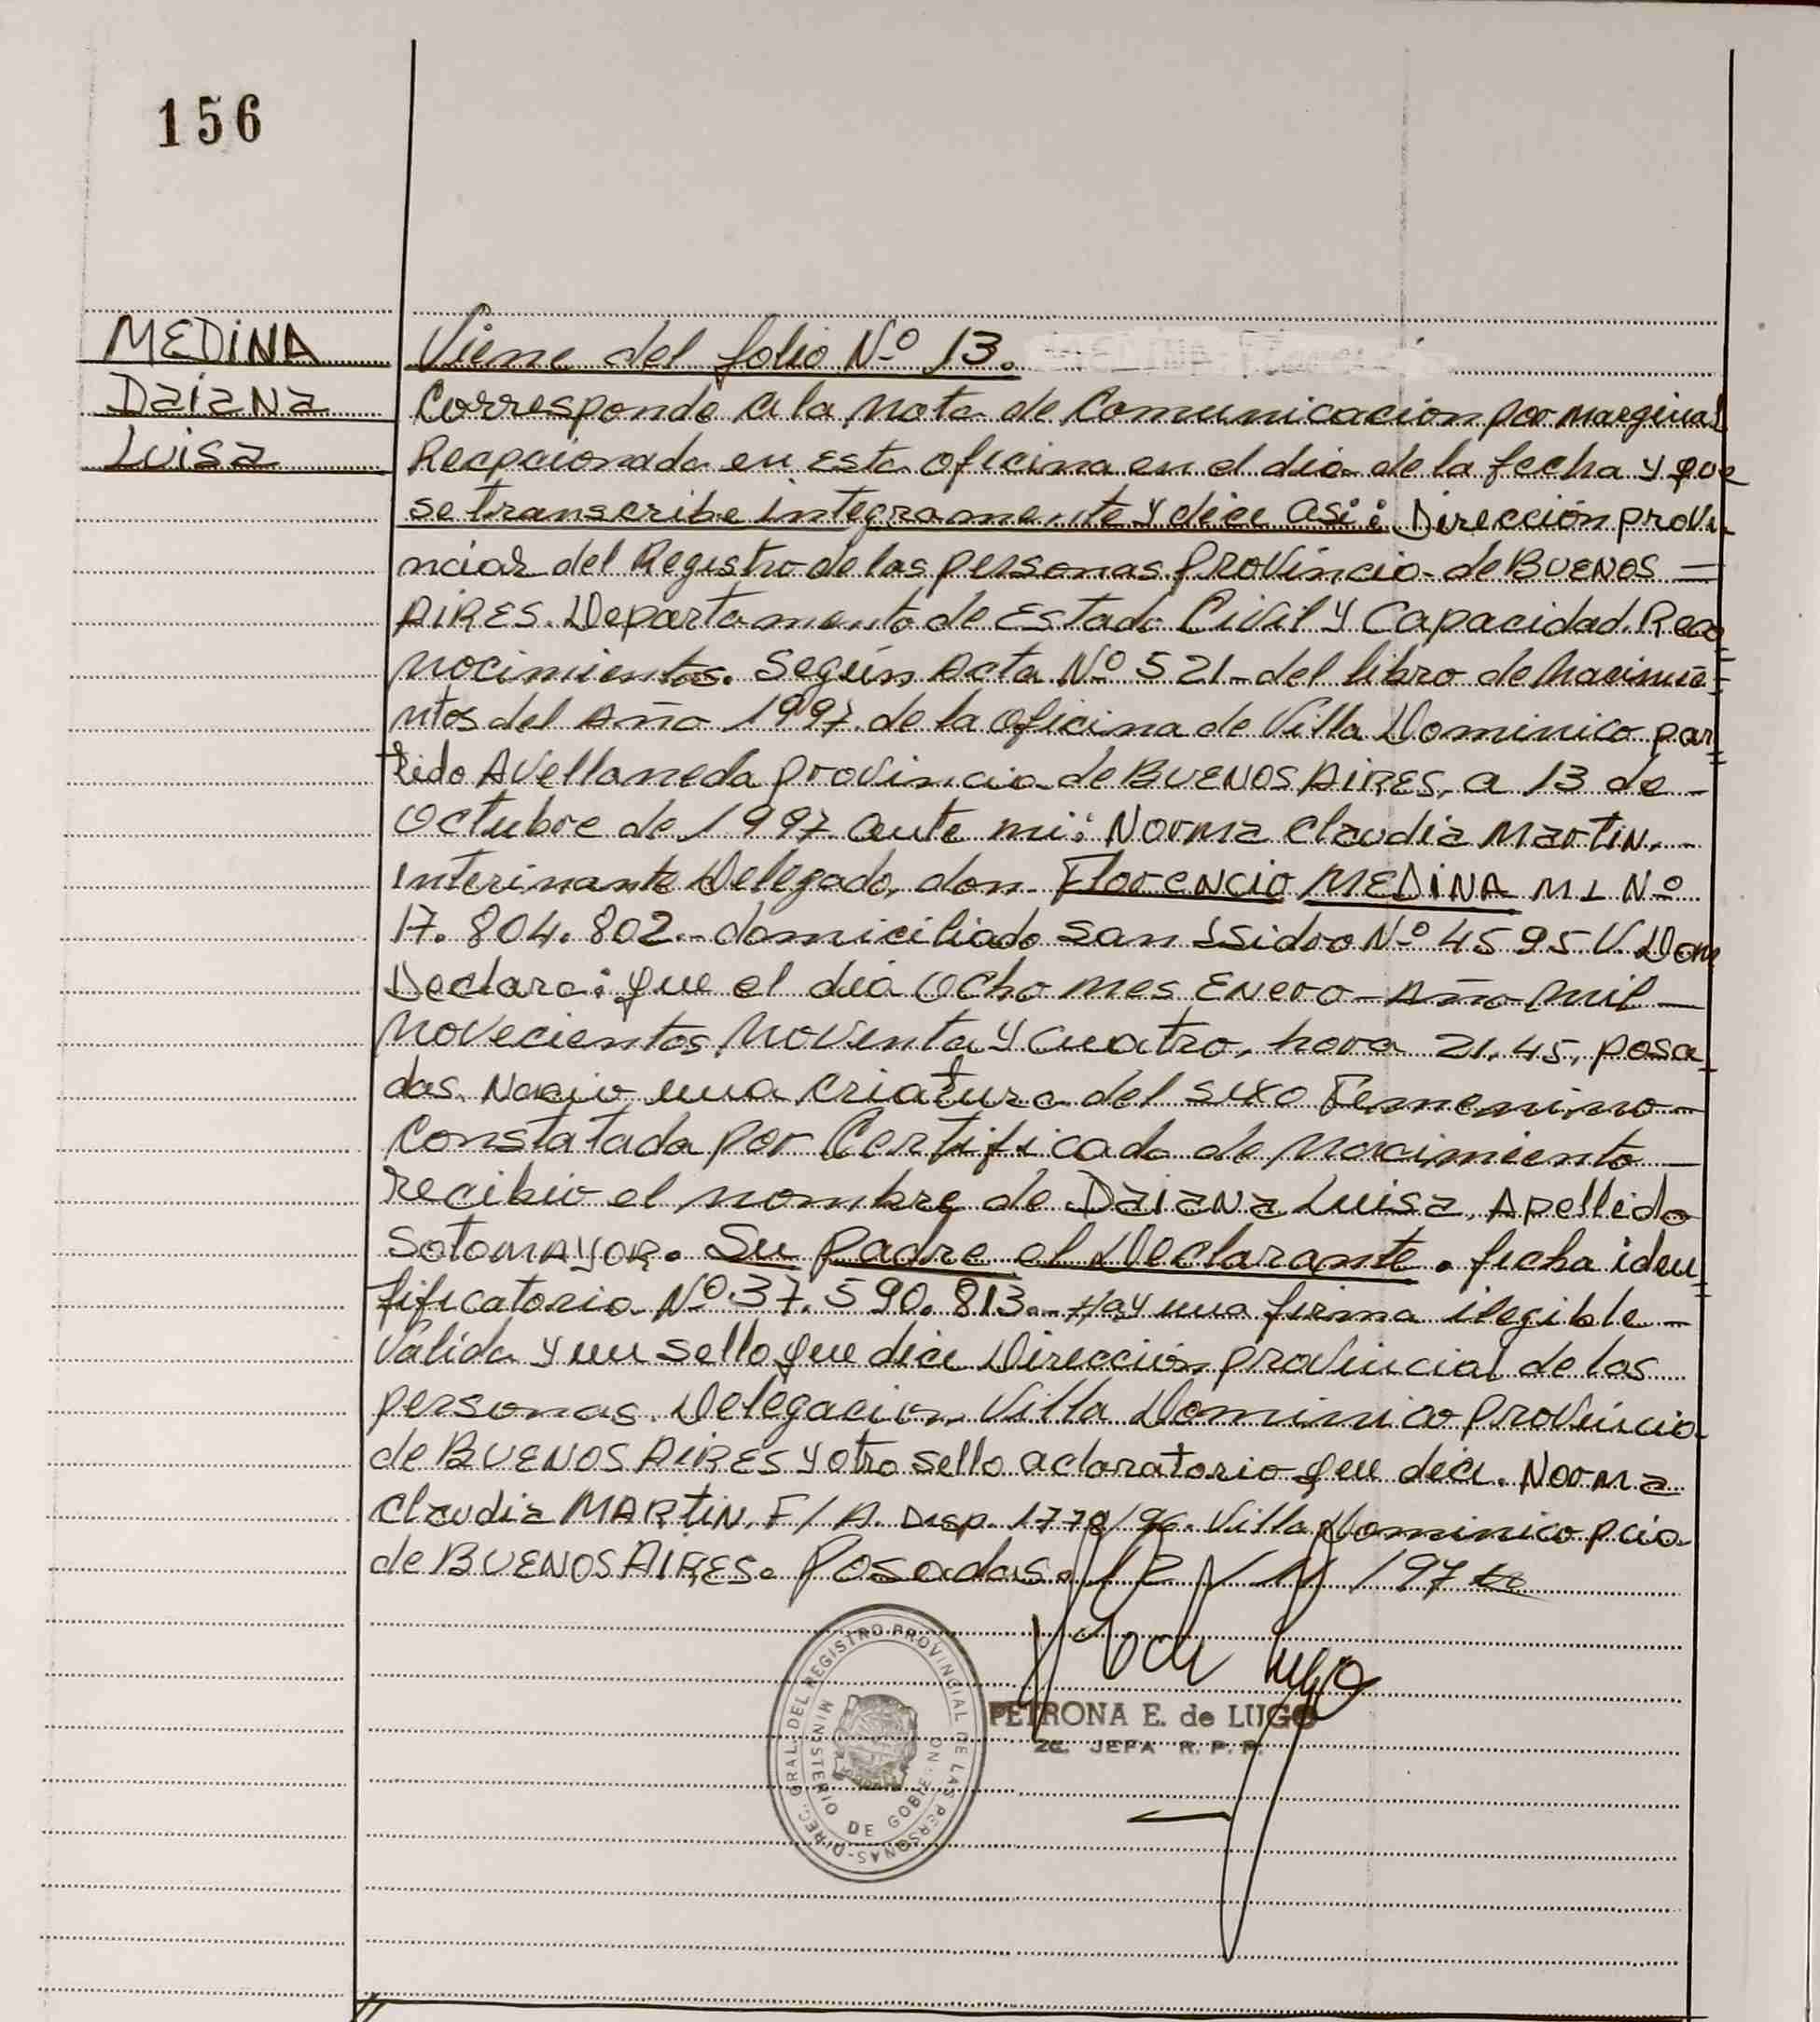 156
MEDINA
Daiana
Luisa
Viene del folio Nº 13.
Corresponde a la Nota de Comunicacion por Marginal
Recpcionada en Esta oficina en el dia de la fecha y que
se transcribe integramente y dice asi: Dirección provi
nciar del Registro de las personas provincia de BUENOS =
AIRES. Departamento de Estado Civil y Capacidad. Reco
nocimientos. Según Acta Nº 521 - del libro de Nacimie
ntos del Año 1997. de la oficina de Villa Dominico par
tido Avellaneda provincia de BUENOS AIRES, a 13 de -
Octubre de 1997 ante mi: Norma Claudia Martin. -
Interinante Delegado, don - Florencio MEDINA M I Nº
17.804.802.- domiciliado San Isidro Nº 4595 V. Dom
Declara: que el dia ocho mes Enero - Año mil -
Novecientos Noventa y Cuatro, hora 21,45, posa
das. Nacio una criatura del sexo Femenimo -
Constatada por Certificado de Nacimiento -
recibio el nombre de Daiana Luisa, Apellido
Sotomayor. Su padre el Declarante. ficha iden
tificatoria Nº 37.590.813.- Hay una firma ilegible -
Valida y un sello que dice Dirección provincial de las
personas. Delegacion Villa Dominico provincia
de BUENOS AIRES y otro sello aclaratorio que dice. Norma
Claudia MARTIN. F/A. Disp. 1778/96. Villa Dominico pcia
de BUENOS AIRES. Posadas. 12 / 11 / 97
PETRONA E. de LUGO
2a. JEFA R. P. P.
DIREC. GRAL. DEL REGISTRO PROVINCIAL DE LAS PERSONAS
MINISTERIO DE GOBIERNO